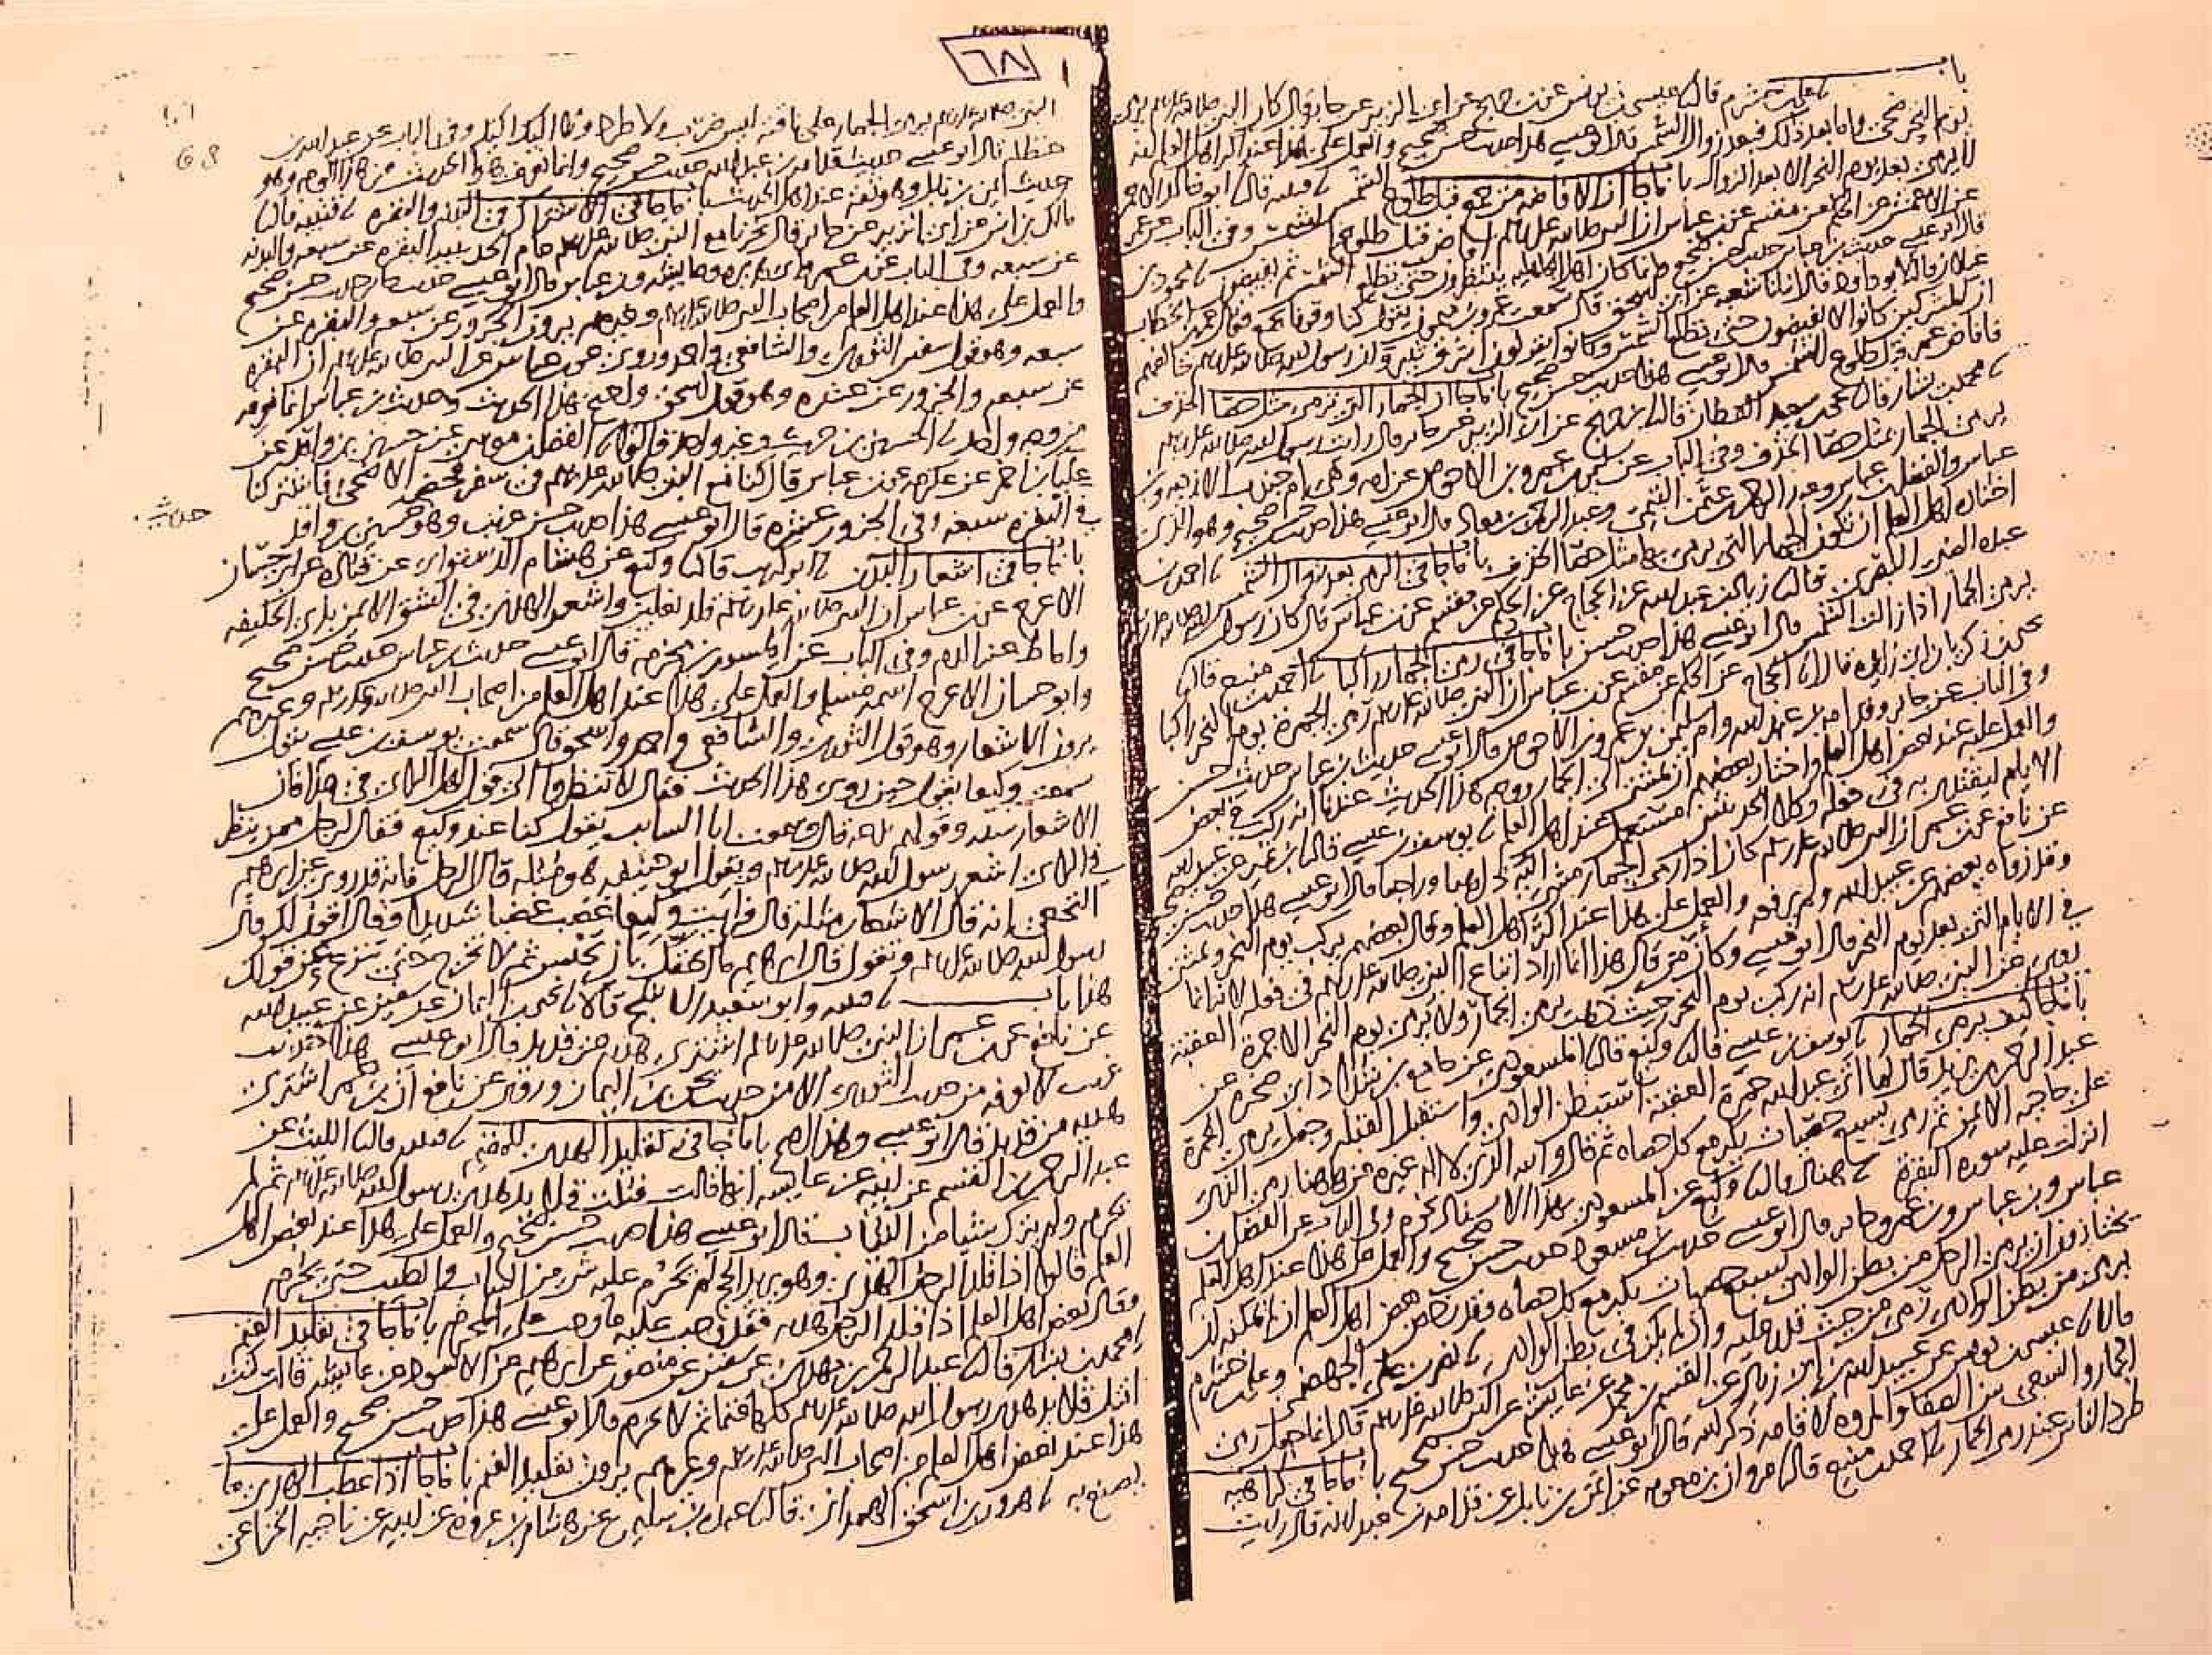 ٦٨
باب
علي بن خشرم قال نا عيسى بن يونس عن بن جريج عن ابي الزبير عن جابر قال كان النبي صلى الله عليه وسلم يرمي
يوم النحر ضحى واما بعد ذلك فبعد زوال الشمس قال ابو عيسى هذا حديث حسن صحيح والعمل على هذا عند اكثر اهل العلم انه
لا يرمي بعد يوم النحر الا بعد الزوال باب ما جا ان الافاضه من جمع قبل طلوع الشمس نا قتيبه قال نا ابو خالد الاحمر
عن الاعمش عن الحكم عن مقسم عن بن عباس ان النبي صلى الله عليه وسلم افاض قبل طلوع الشمس وفي الباب عن عمر
قال ابو عيسى حديث بن عباس حديث حسن صحيح وانما كان اهل الجاهليه ينتظرون حتى تطلع الشمس ثم يفيضون نا محمود بن
غيلان قال نا ابو داود قال انبانا شعبه عن ابي اسحق قال سمعت عمرو بن ميمون يقول كنا وقوفا بجمع فقال عمر بن الخطاب
ان المشركين كانوا لا يفيضون حتى تطلع الشمس وكانوا يقولون اشرق ثبير وان رسول الله صلى الله عليه وسلم خالفهم
فافاض عمر قبل طلوع الشمس قال ابو عيسى هذا حديث حسن صحيح باب ما جا ان الجمار التي ترمى مثل حصا الخذف
نا محمد بن بشار قال نا يحيى بن سعيد القطان قال نا بن جريج عن ابي الزبير عن جابر قال رايت رسول الله صلى الله عليه وسلم
يرمي الجمار بمثل حصا الخذف وفي الباب عن سليمن بن عمرو بن الاحوص عن امه وهي ام جندب الازديه وبن
عباس والفضل بن عباس وعبد الرحمن بن عثمن التيمي وعبد الرحمن بن معاذ قال ابو عيسى هذا حديث حسن صحيح وهو الذي
اختار اهل العلم ان تكون الجمار التي يرمى بها مثل حصا الخذف باب ما جا في الرمي بعد زوال الشمس نا احمد بن
عبده الضبي البصري قال نا زياد بن عبد الله عن الحجاج عن الحكم عن مقسم عن بن عباس قال كان رسول الله صلى الله عليه وسلم
يرمي الجمار اذا زالت الشمس قال ابو عيسى هذا حديث حسن باب ما جا في رمي الجمار راكبا نا احمد بن منيع قال نا
يحيى بن زكريا بن ابي زايده قال انا الحجاج عن الحكم عن مقسم عن بن عباس ان النبي صلى الله عليه وسلم رمى الجمره يوم النحر راكبا
وفي الباب عن جابر وقدامه بن عبد الله وام سليمن بن عمرو بن الاحوص قال ابو عيسى حديث بن عباس حديث حسن
والعمل عليه عند بعض اهل العلم واختار بعضهم ان يمشي الى الجمار ووجه هذا الحديث عندنا انه ركب في بعض
الايام ليقتدى به في فعله وكلا الحديثين مستعمل عند اهل العلم نا يوسف بن عيسى قال نا بن نمير عن عبيد الله
عن نافع عن بن عمر ان النبي صلى الله عليه وسلم كان اذا رمى الجمار مشى اليه ذاهبا وراجعا قال ابو عيسى هذا حديث حسن صحيح
وقد رواه بعضهم عن عبيد الله ولم يرفعه والعمل على هذا عند اكثر اهل العلم وقال بعضهم يركب يوم النحر ويمشي
في الايام التي بعد يوم النحر قال ابو عيسى وكان من قال هذا انما اراد اتباع النبي صلى الله عليه وسلم في فعله لانه انما
روي عن النبي صلى الله عليه وسلم انه ركب يوم النحر حيث ذهب يرمي الجمار ولا يرمي يوم النحر الا جمرة العقبه
باب ما جا كيف يرمى الجمار نا يوسف بن عيسى قال نا وكيع قال نا المسعودي عن جامع بن شداد ابي صخره عن
عبد الرحمن بن يزيد قال لما اتى عبد الله جمرة العقبه استبطن الوادي واستقبل القبله وجعل يرمي الجمرة
على حاجبه الايمن ثم رمى بسبع حصيات يكبر مع كل حصاه ثم قال والله الذي لا اله غيره من هاهنا رمى الذي
انزلت عليه سورة البقرة نا هناد قال نا وكيع عن المسعودي بهذا الاسناد نحوه وفي الباب عن الفضل بن
عباس وبن عباس وبن عمر وجابر قال ابو عيسى حديث بن مسعود حديث حسن صحيح والعمل على هذا عند اهل العلم
يختارون ان يرمي الرجل من بطن الوادي بسبع حصيات يكبر مع كل حصاه وقد رخص بعض اهل العلم ان لم يمكنه ان
يرمي من بطن الوادي رمى من حيث قدر عليه وان لم يكن في بطن الوادي نا نصر بن علي الجهضمي وعلي بن خشرم
قالا نا عيسى بن يونس عن عبيد الله بن ابي زياد عن القسم بن محمد عن عايشه عن النبي صلى الله عليه وسلم قال انما جعل رمي
الجمار والسعي بين الصفا والمروه لاقامه ذكر الله قال ابو عيسى هذا حديث حسن صحيح باب ما جا في كراهيه
طرد الناس عند رمي الجمار نا احمد بن منيع قال نا مروان بن معويه عن ايمن بن نابل عن قدامه بن عبد الله قال رايت
النبي صلى الله عليه وسلم يرمي الجمار على ناقه ليس ضرب ولا طرد ولا اليك اليك وفي الباب عن عبد الله بن
حنظله قال ابو عيسى حديث قدامه بن عبد الله حديث حسن صحيح وانما يعرف هذا الحديث من هذا الوجه وهو
حديث ايمن بن نابل وهو ثقه عند اهل الحديث باب ما جا في الاشتراك في البدنه والبقره نا قتيبه قال نا
مالك بن انس عن ابي الزبير عن جابر قال نحرنا مع النبي صلى الله عليه وسلم عام الحديبيه البقره عن سبعه والبدنه
عن سبعه وفي الباب عن بن عمر وابي هريره وعايشه وبن عباس قال ابو عيسى حديث جابر حديث حسن صحيح
والعمل على هذا عند اهل العلم من اصحاب النبي صلى الله عليه وسلم وغيرهم يرون الجزور عن سبعه والبقره عن
سبعه وهو قول سفين الثوري والشافعي واحمد وروي عن بن عباس عن النبي صلى الله عليه وسلم ان البقره
عن سبعه والجزور عن عشره وهو قول اسحق واحتج بهذا الحديث وحديث بن عباس انما نعرفه
من وجه واحد نا الحسين بن حريث وغير واحد قالوا نا الفضل بن موسى عن حسين بن واقد عن
علبا بن احمر عن عكرمه عن بن عباس قال كنا مع النبي صلى الله عليه وسلم في سفر فحضر الاضحى فاشتركنا
في البقره سبعه وفي الجزور عشره قال ابو عيسى هذا حديث حسن غريب وهو حديث حسين بن واقد
حديث
باب ما جا في اشعار البدن نا ابو كريب قال نا وكيع عن هشام الدستواي عن قتاده عن ابي حسان
الاعرج عن بن عباس ان النبي صلى الله عليه وسلم قلد نعلين واشعر الهدي في الشق الايمن بذي الحليفه
واماط عنه الدم وفي الباب عن المسور بن مخرمه قال ابو عيسى حديث بن عباس حديث حسن صحيح
وابو حسان الاعرج اسمه مسلم والعمل على هذا عند اهل العلم من اصحاب النبي صلى الله عليه وسلم وغيرهم
يرون الاشعار وهو قول الثوري والشافعي واحمد واسحق قال سمعت يوسف بن عيسى يقول
سمعت وكيعا يقول حين روى هذا الحديث فقال لا تنظروا الى قول اهل الراي في هذا فان
الاشعار سنه وقولهم بدعه قال وسمعت ابا السايب يقول كنا عند وكيع فقال لرجل ممن ينظر
في الراي اشعر رسول الله صلى الله عليه وسلم ويقول ابو حنيفه هو مثله قال الرجل فانه قد روي عن ابرهيم
النخعي انه قال الاشعار مثله قال فرايت وكيعا غضب غضبا شديدا وقال اقول لك قال
رسول الله صلى الله عليه وسلم وتقول قال ابرهيم ما احقك بان تحبس ثم لا تخرج حتى تنزع عن قولك
هذا باب نا قتيبه وابو سعيد الاشج قالا نا يحيى بن اليمان عن سفين عن عبيد الله
عن نافع عن بن عمر ان النبي صلى الله عليه وسلم اشترى هديه من قديد قال ابو عيسى هذا حديث
غريب لا نعرفه من حديث الثوري الا من حديث يحيى بن اليمان وروي عن نافع ان بن عمر اشترى
هديه من قديد قال ابو عيسى وهذا اصح باب ما جا في تقليد الهدي للمقيم نا قتيبه قال نا الليث عن
عبد الرحمن بن القسم عن ابيه عن عايشه انها قالت فتلت قلايد هدي رسول الله صلى الله عليه وسلم ثم لم
يحرم ولم يترك شيا من الثياب قال ابو عيسى هذا حديث حسن صحيح والعمل على هذا عند بعض اهل
العلم قالوا اذا قلد الرجل الهدي وهو يريد الحج لم يحرم عليه شي من الثياب والطيب حتى يحرم
وقال بعض اهل العلم اذا قلد الرجل هديه فقد وجب عليه ما وجب على المحرم باب ما جا في تقليد الغنم
نا محمد بن بشار قال نا عبد الرحمن بن مهدي عن سفين عن منصور عن ابرهيم عن الاسود عن عايشه قالت كنت
افتل قلايد هدي رسول الله صلى الله عليه وسلم كلها غنما ثم لا يحرم قال ابو عيسى هذا حديث حسن صحيح والعمل على
هذا عند بعض اهل العلم من اصحاب النبي صلى الله عليه وسلم وغيرهم يرون تقليد الغنم باب ما جا اذا عطب الهدي ما
يصنع به نا هرون بن اسحق الهمداني قال نا عبده بن سليمن عن هشام بن عروه عن ابيه عن ناجيه الخزاعي